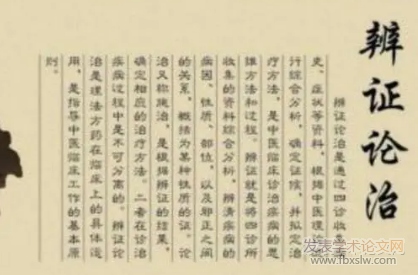 辨证论治
辨证论治是通过四诊收集病
史、症状等资料，根据中医理论进
行综合分析，确定证候，并拟定治
疗方法，是中医诊治疾病的思
维方法和过程。辨证就是将四诊所
收集的资料综合分析，辨清疾病的
病因、性质、部位，以及邪正之间
的关系，概括为某种性质的证。论
治又称施治，是根据辨证的结果，
确定相应的治疗方法。二者在诊治
疾病过程中是不可分离的。辨证论
治是理法方药在临床上的具体运
用，是指导中医临床工作的基本原
则。
发表学术论文网
www.fbxslw.com